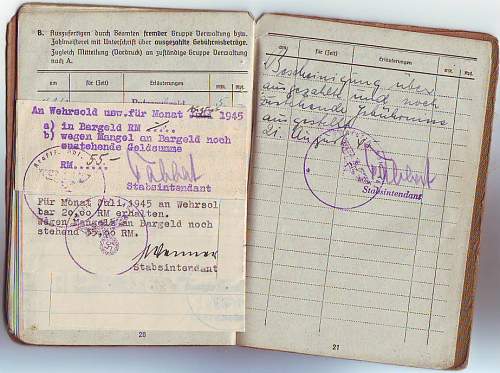 B. Auszufertigen durch Beamten fremder Gruppe Verwaltung bzw.
Zahlmeisterei mit Unterschrift über ausgezahlte Gebührnisbeträge.
Zugleich Mitteilung (Vordruck) an zuständige Gruppe Verwaltung
nach A.
am für (Zeit) Erläuterungen RM. Rpf.
An Wehrsold usw. für Monat 1945
a) in Bargeld RM
b) wegen Mangel an Bargeld noch
zustehende Geldsumme
RM.... 55.-
Stabsintendant
Für Monat Juli 1945 an Wehrsol
bar 20,00 RM erhalten.
Wegen Mangel an Bargeld noch
stehend 35,00 RM.
Stabsintendant
20
am für (Zeit) Erläuterungen RM. Rpf.
Bescheinigung über
ausgezahlte und noch
zustehende
ausgestellt
21. August 45
Stabsintendant
21